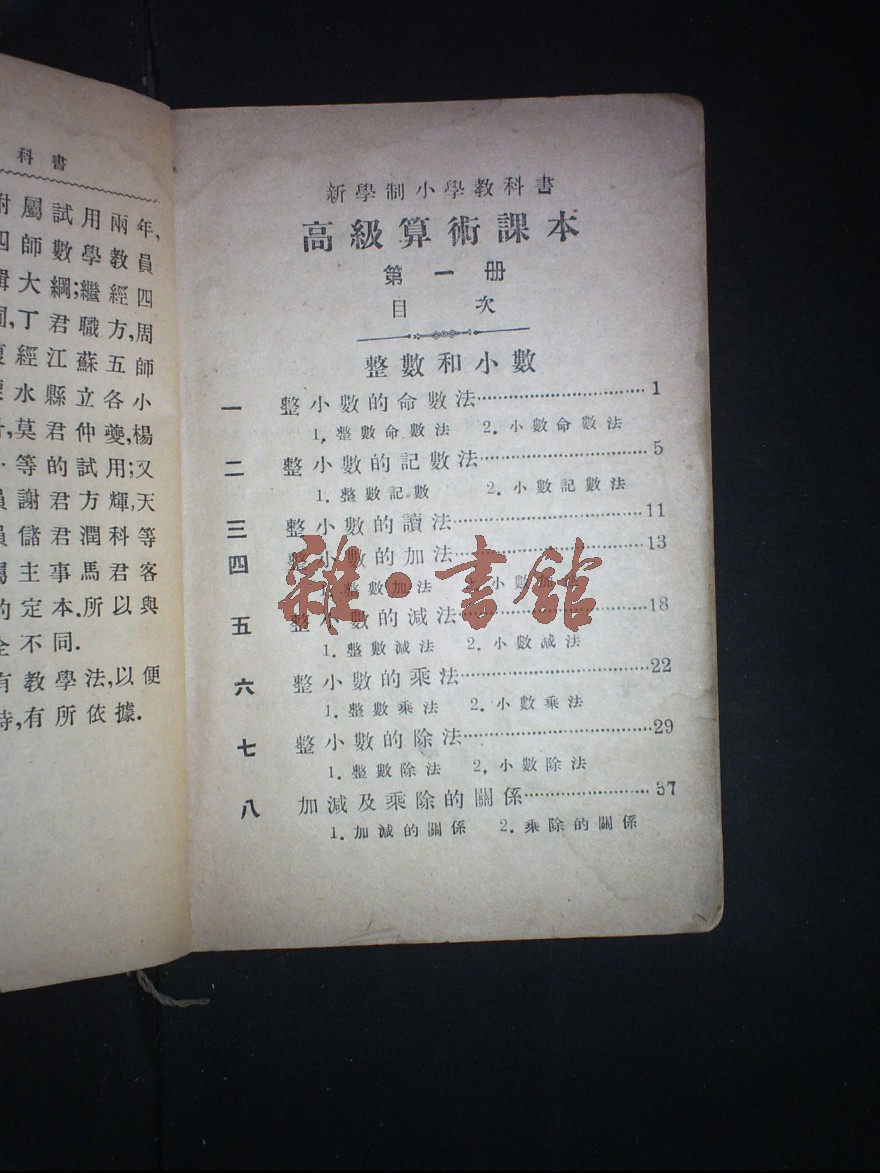 科書
附屬試用兩年,
四師數學教員
輯大綱;繼經四
周,丁君職方,周
復經江蘇五師
溧水縣立各小
,莫君仲夔,楊
等的試用;又
員謝君方輝,天
員儲君潤科等
屬主事馬君客
的定本.所以與
全不同.
有教學法,以便
時,有所依據.
新學制小學教科書
高級算術課本
第一册
目次
整數和小數
一 整小數的命數法……1
1. 整數命數法 2. 小數命數法
二 整小數的記數法……5
1. 整數記數 2. 小數記數法
三 整小數的讀法……11
四 整小數的加法……13
整數加法 2. 小數加法
五 整小數的減法……18
1. 整數減法 2. 小數減法
六 整小數的乘法……22
1. 整數乘法 2. 小數乘法
七 整小數的除法……29
1. 整數除法 2. 小數除法
八 加減及乘除的關係……37
1. 加減的關係 2. 乘除的關係
雜·書館